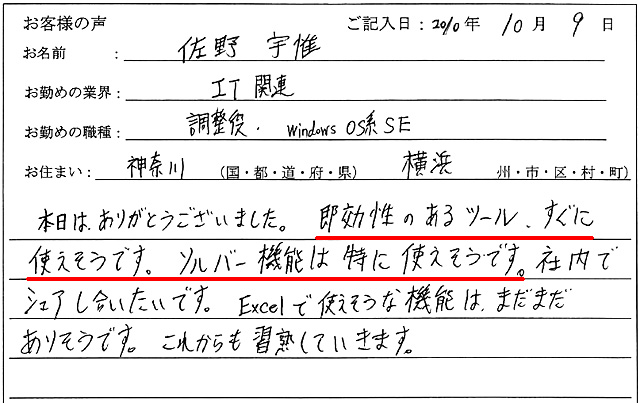 お客様の声 ご記入日：2010年 10月 9日
お名前 ： 佐野 宇惟
お勤めの業界： IT関連
お勤めの職種： 調整役．Windows OS系SE
お住まい： 神奈川 （国・都・道・府・県） 横浜 州・市・区・村・町）
本日は、ありがとうございました。即効性のあるツール、すぐに
使えそうです。ソルバー機能は特に使えそうです。社内で
シェアし合いたいです。Excelで使えそうな機能は、まだまだ
ありそうです。これからも習熟していきます。